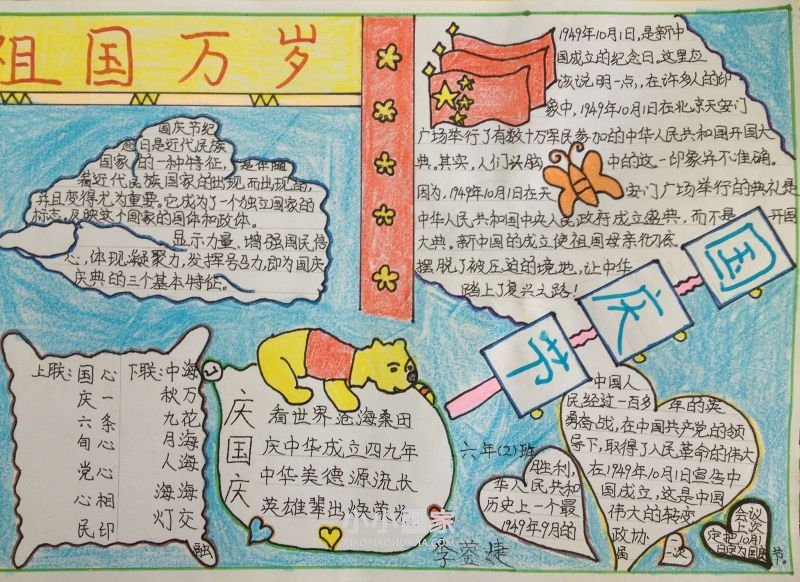 祖国万岁
国庆节纪
念日是近代民族
国家的一种特征，是伴随
着近代民族国家的出现而出现的，
并且变得尤为重要。它成为了一个独立国家的
标志，反映这个国家的国体和政体。
显示力量，增强国民信
心，体现凝聚力，发挥号召力，即为国庆
庆典的三个基本特征。
1949年10月1日，是新中
国成立的纪念日，这里应
该说明一点，在许多人的印
象中，1949年10月1日在北京天安门
广场举行了有数十万军民参加的中华人民共和国开国大
典。其实，人们头脑中的这一印象并不准确。
因为，1949年10月1日在天安门广场举行的典礼是
中华人民共和国中央人民政府成立盛典，而不是开国
大典。新中国的成立使祖国母亲彻底
摆脱了被压迫的境地，让中华
踏上了复兴之路！
国庆节
上联：国庆六旬党心民心一条心心相印
下联：中秋九月人海灯海万花海海交融
庆国庆
看世界沧海桑田
庆中华成立四九年
中华美德源流长
英雄辈出焕荣光
六年(2)班
李蓥婕
中国人
民经过一百多年的英
勇奋战，在中国共产党的领
导下，取得了人民革命的伟大
胜利，
在1949年10月1日宣告中
华人民共和
国成立，这是中国
历史上一个最
伟大的转变
1949年9月的
政协
届
一次
会议
上次
定把10月1
日定为国庆节。
小小画家
XIAOXIAOHUAJIA.COM